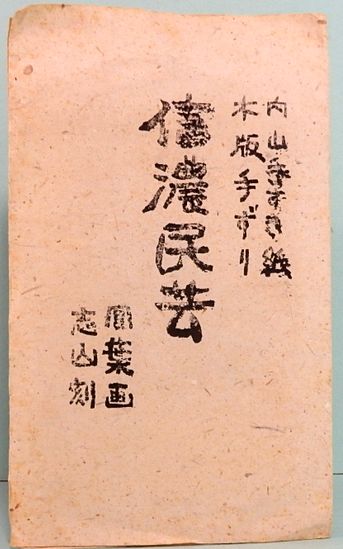 内山手すき紙
木版手ずり
信濃民芸
葉画
志山刻